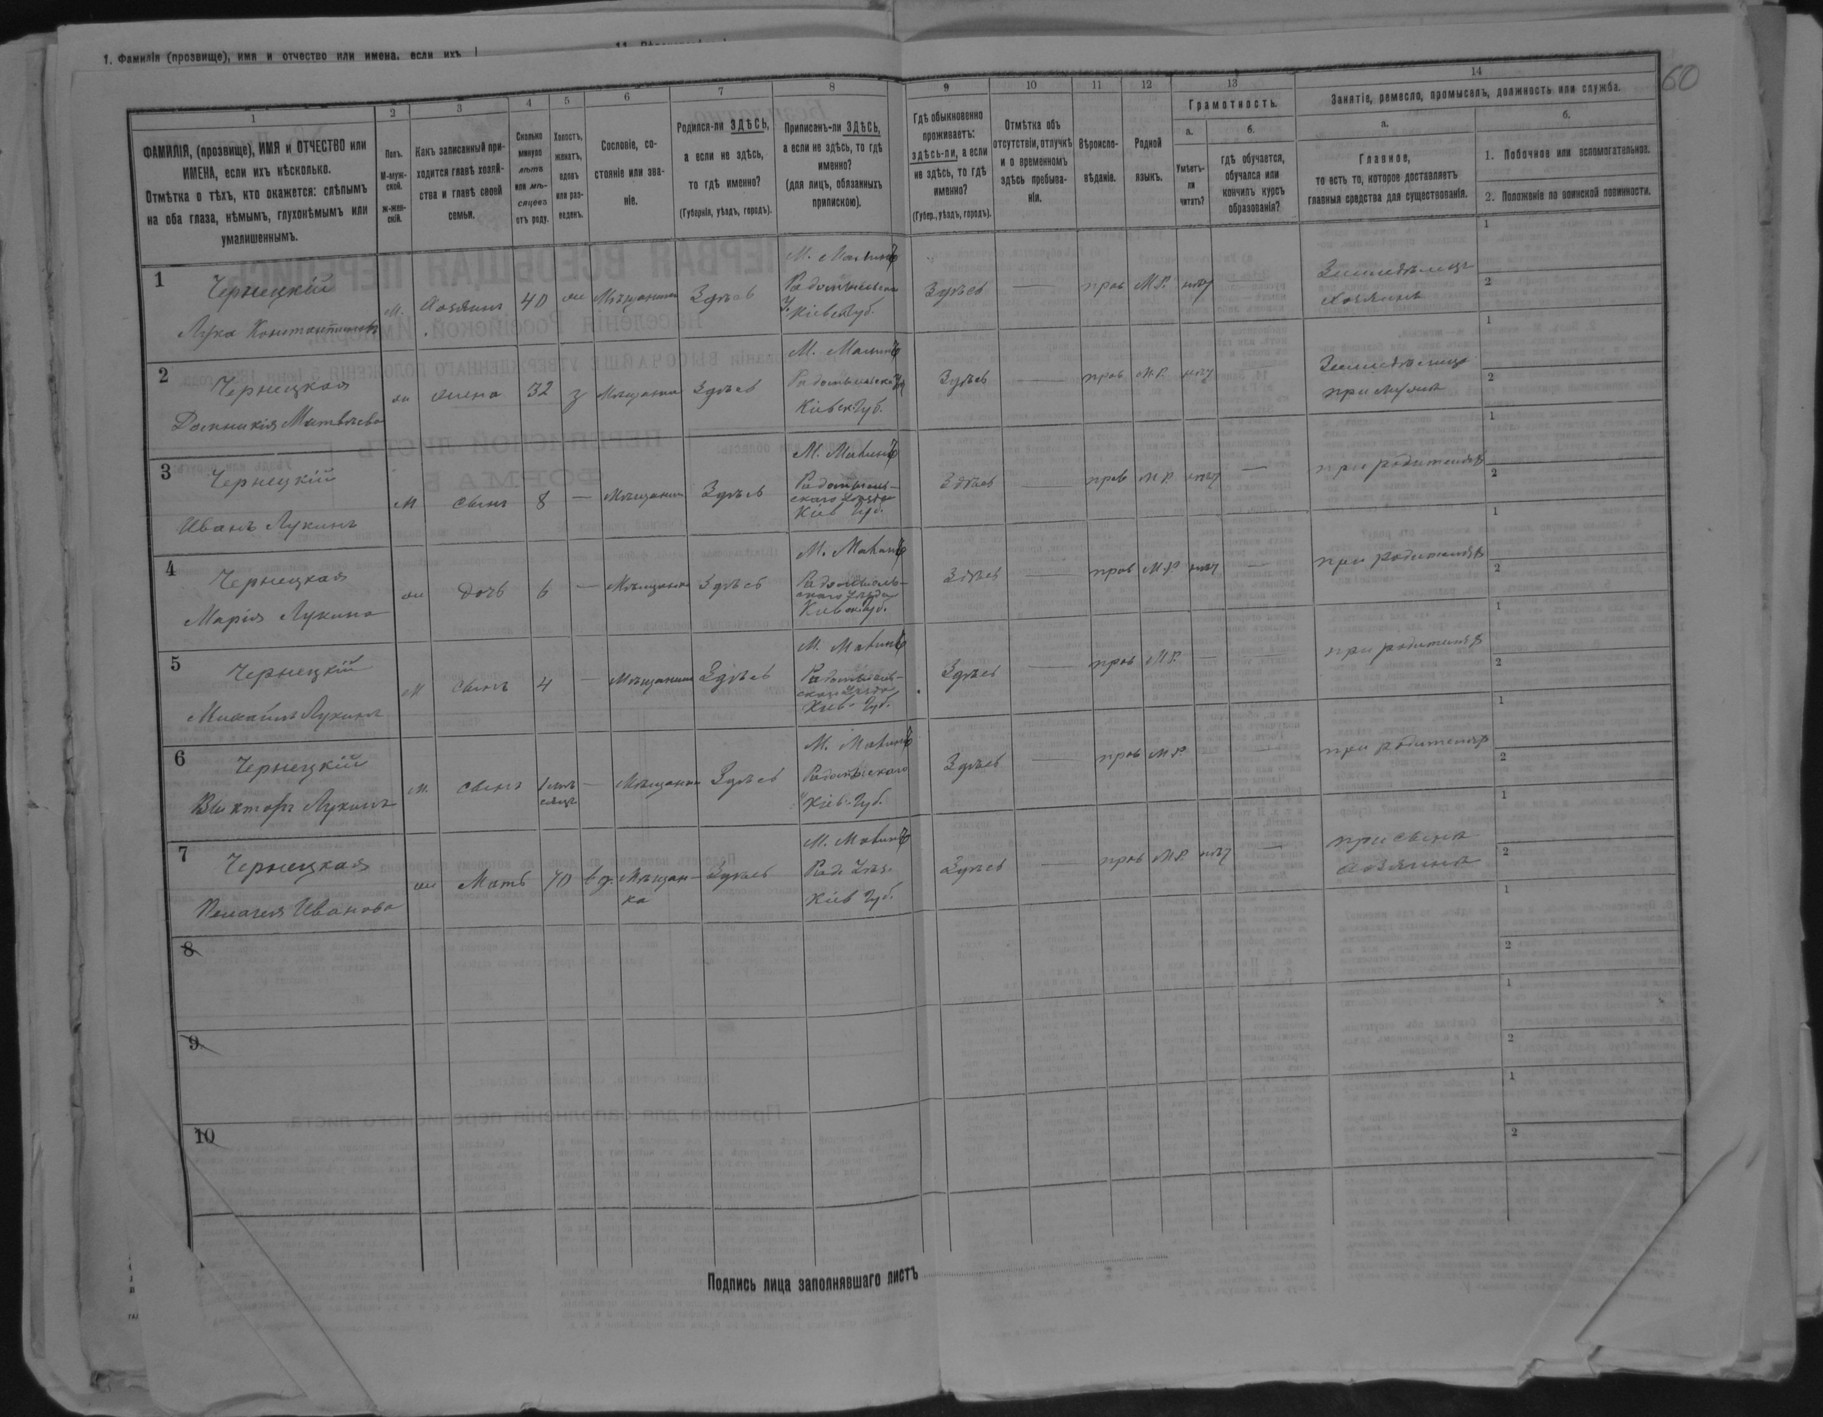 1. Фамилія (прозвище), имя и отчество или имена, если ихъ
60
1 2 3 4 5 6 7 8 9 10 11 12 13 14
ФАМИЛІЯ, (прозвище), ИМЯ и ОТЧЕСТВО или ИМЕНА, если ихъ нѣсколько.
Отмѣтка о тѣхъ, кто окажется: слѣпымъ на оба глаза, нѣмымъ, глухонѣмымъ или умалишеннымъ.
Полъ.
М-муж-
ской.
Ж-жен-
скій.
Какъ записанный при-
ходится главѣ хозяй-
ства и главѣ своей
семьи.
Сколько
минуло
лѣтъ
или мѣ-
сяцевъ
отъ роду.
Холостъ,
женатъ,
вдовъ
или раз-
веденъ.
Сословіе, со-
стояніе или зва-
ніе.
Родился-ли ЗДѢСЬ,
а если не здѣсь,
то гдѣ именно?
(Губернія, уѣздъ, городъ).
Приписанъ-ли ЗДѢСЬ,
а если не здѣсь, то гдѣ
именно?
(для лицъ, обязанныхъ
припискою).
Гдѣ обыкновенно
проживаетъ:
здѣсь-ли, а если
не здѣсь, то гдѣ
именно?
(Губер., уѣздъ, городъ).
Отмѣтка объ
отсутствіи, отлучкѣ
и о временномъ
здѣсь пребыва-
ніи.
Вѣроиспо-
вѣданіе.
Родной
языкъ.
Грамотность.
а.
Умѣетъ-
ли
читать?
б.
гдѣ обучается,
обучался или
кончилъ курсъ
образованія?
Занятіе, ремесло, промыселъ, должность или служба.
а.
Главное,
то есть то, которое доставляетъ
главныя средства для существованія.
б.
1. Побочное или вспомогательное.
2. Положеніе по воинской повинности.
1
Чернецкій
Лука Константиновъ
м. Хозяинъ 40 ж Мѣщанинъ Здѣсь
М. Малинъ
Радомысльск
У. Кіевск Губ.
Здѣсь — прав М.Р. нѣт —
Земледѣлецъ
хозяинъ
1
2
2
Чернецкая
Домникія Матвѣева
ж жена 32 з Мѣщанка Здѣсь
М. Малинъ
Кіевск Губ.
Здѣсь — прав М.Р. нѣт
Земледѣлица
при мужѣ
1
2
3
Чернецкій
Иванъ Лукинъ
м сынъ 8 — Мѣщанинъ Здѣсь
М. Малинъ
Радомысль-
скаго Уѣзда
Кіев Губ.
Здѣсь — прав М.Р. нѣт —
при родителяхъ
1
2
4
Чернецкая
Марія Лукина
ж дочь 6 — Мѣщанка Здѣсь
М. Малинъ
Радомысль-
скаго Уѣзда
Кіевск Губ.
Здѣсь — прав М.Р. нѣт —
при родителяхъ
1
2
5
Чернецкій
Михаилъ Лукинъ
м сынъ 4 — Мѣщанинъ Здѣсь
М. Малинъ
Радомысль-
скаго Уѣзда
Кіев. Губ.
Здѣсь — прав М.Р. — —
при родителяхъ
1
2
6
Чернецкій
Викторъ Лукинъ
м. сынъ — Мѣщанинъ Здѣсь
М. Малинъ
Кіев. Губ.
Здѣсь — прав М.Р. —
при родителяхъ
1
2
7
Чернецкая
Пелагея Иванова
ж Мать 70 вд. Мѣщан-
ка
Здѣсь
М. Малинъ
Рад. Уѣз.
Кіев Губ.
Здѣсь — прав М.Р. нѣт —
при сынѣ
хозяинѣ
1
2
8
1
2
9
1
2
10
1
2
Подпись лица заполнявшаго листъ